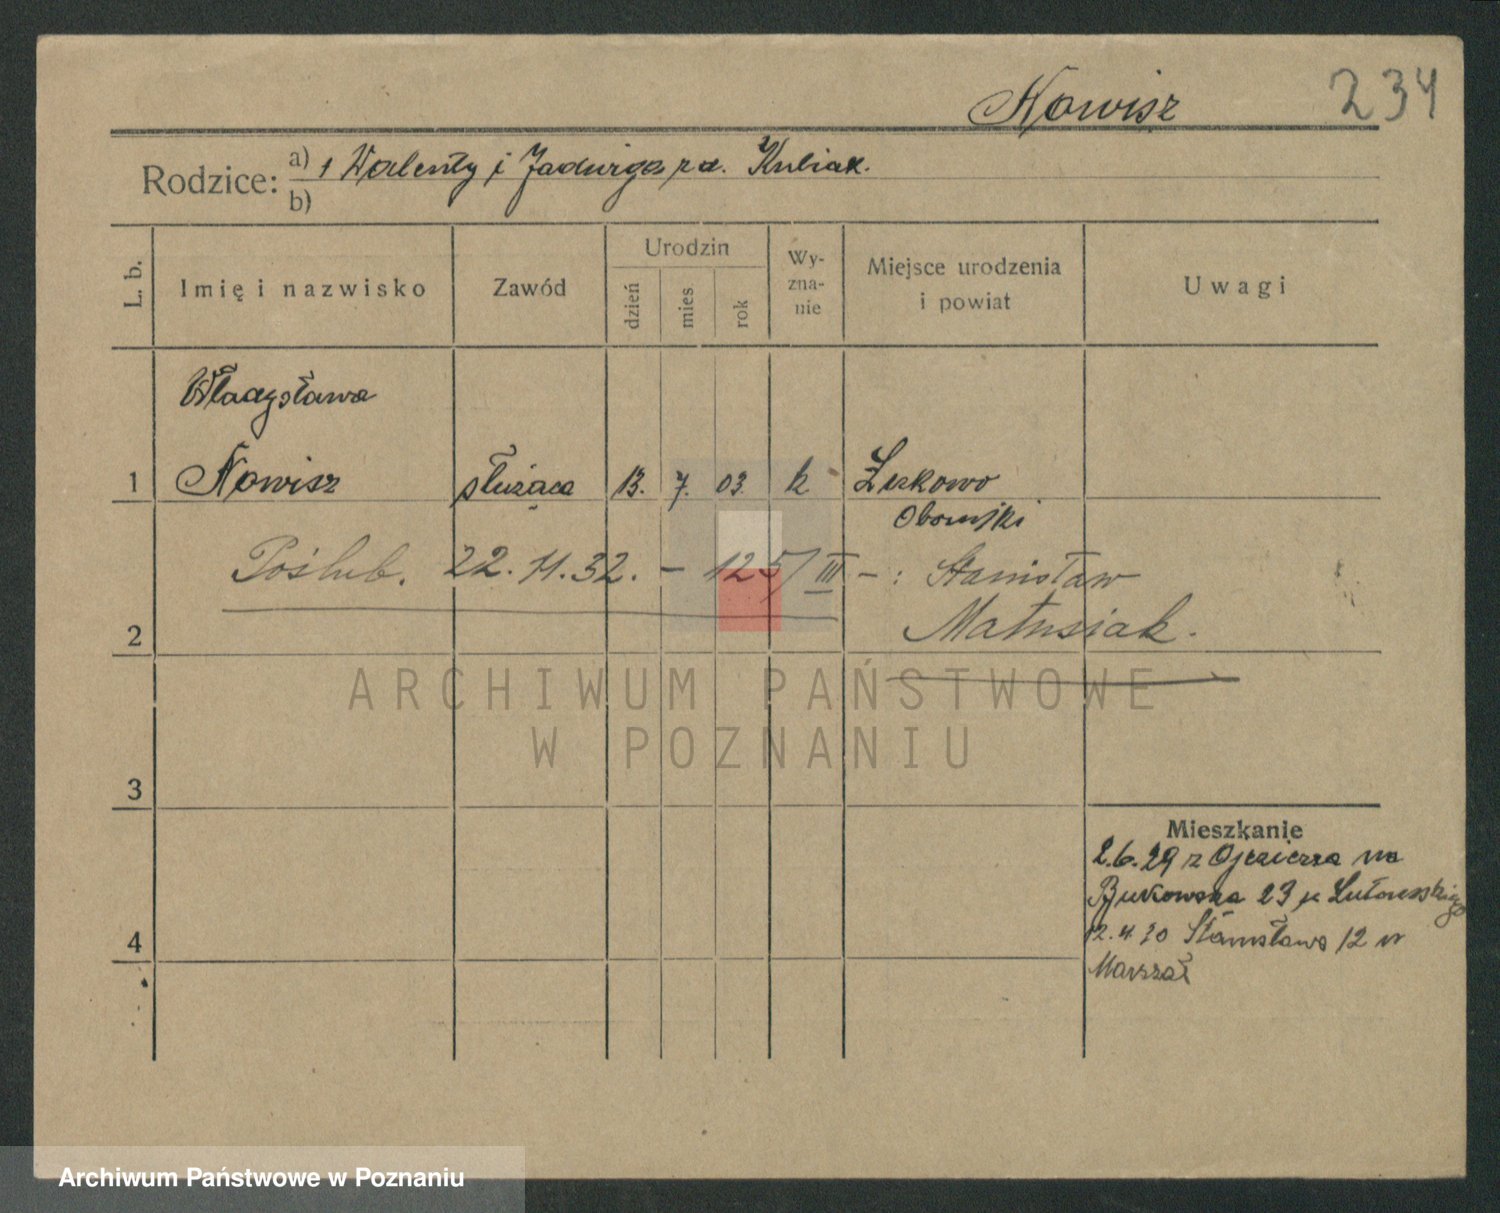 Nowisz
234
Rodzice: a) 1 Walenty i Jadwiga zd. Kubiak.
b)
L. b.
Imię i nazwisko
Zawód
Urodzin
dzień
mies
rok
Wy-
zna-
nie
Miejsce urodzenia
i powiat
Uwagi
Władysława
1 Nowisz służąca 13. 7. 03 k Żukowo
Obornicki
Poślub. 22.11.32. - 125/III - : Stanisław
Matusiak.
2
ARCHIWUM PAŃSTWOWE
W POZNANIU
3
Mieszkanie
2.6.29 z na
Bukowska 23 Lutowskiego
4
12.4.30 Stanisława 12 u
Marszał
Archiwum Państwowe w Poznaniu